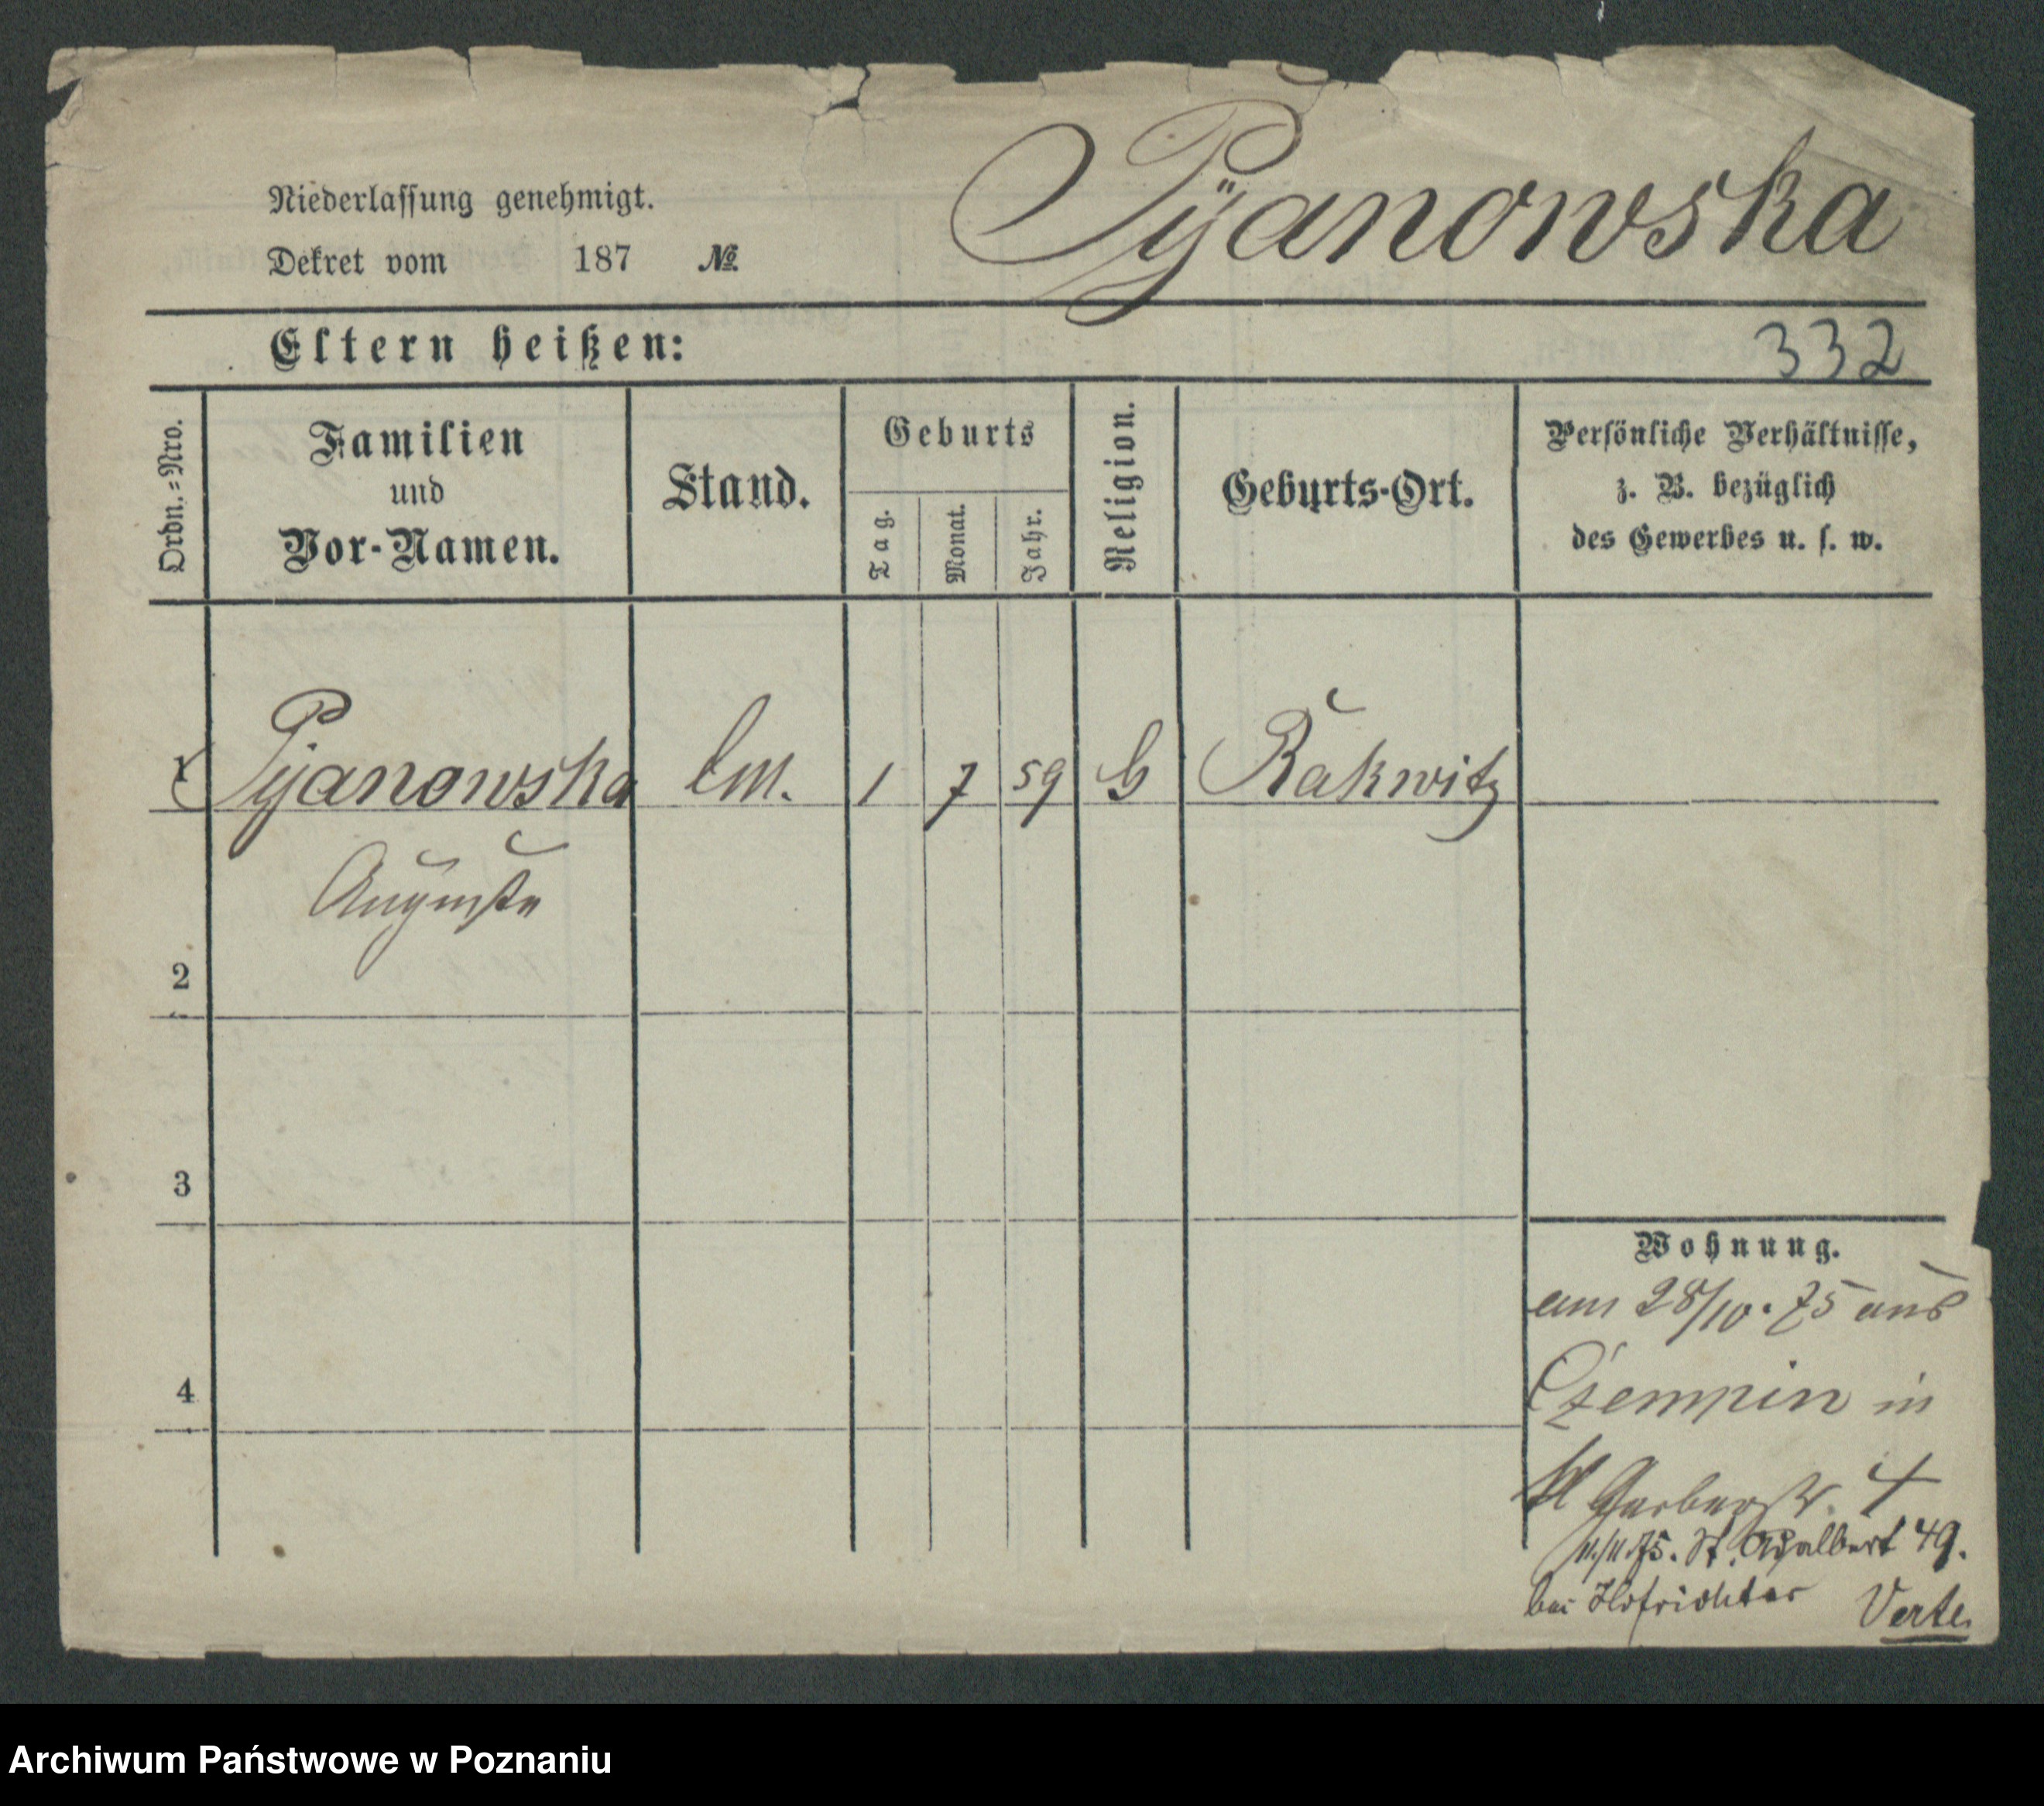 Pÿanowska
Niederlassung genehmigt.
Dekret vom 187 №
Eltern heißen:
332
Ordn.-Nro.
Familien
und
Vor-Namen.
Stand.
Geburts
Tag.
Monat.
Jahr.
Religion.
Geburts-Ort.
Persönliche Verhältnisse,
z. B. bezüglich
des Gewerbes u. s. w.
1 Pyanowska 1 7 59 Rakwitz
Auguste
2
3
4
Wohnung.
am 28/10. 75 aus
Czempin in
Kl Gerberstr. 4
11/11 75. St. Adalbert 49.
bei Hofrichter Verte
Archiwum Państwowe w Poznaniu